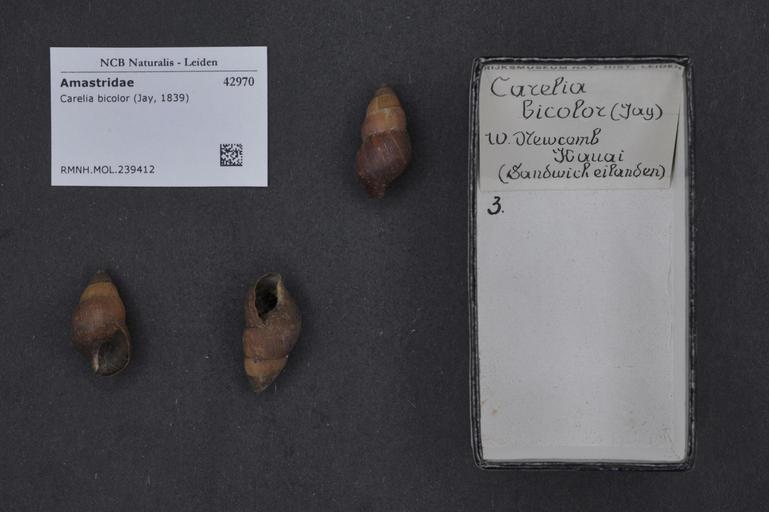 NCB Naturalis - Leiden
Amastridae 42970
Carelia bicolor (Jay, 1839)
RMNH.MOL.239412
RIJKSMUSEUM NAT. HIST. LEIDEN
Carelia
bicolor (Jay)
W. Newcomb
Kauai
(Sandwich eilanden)
3.